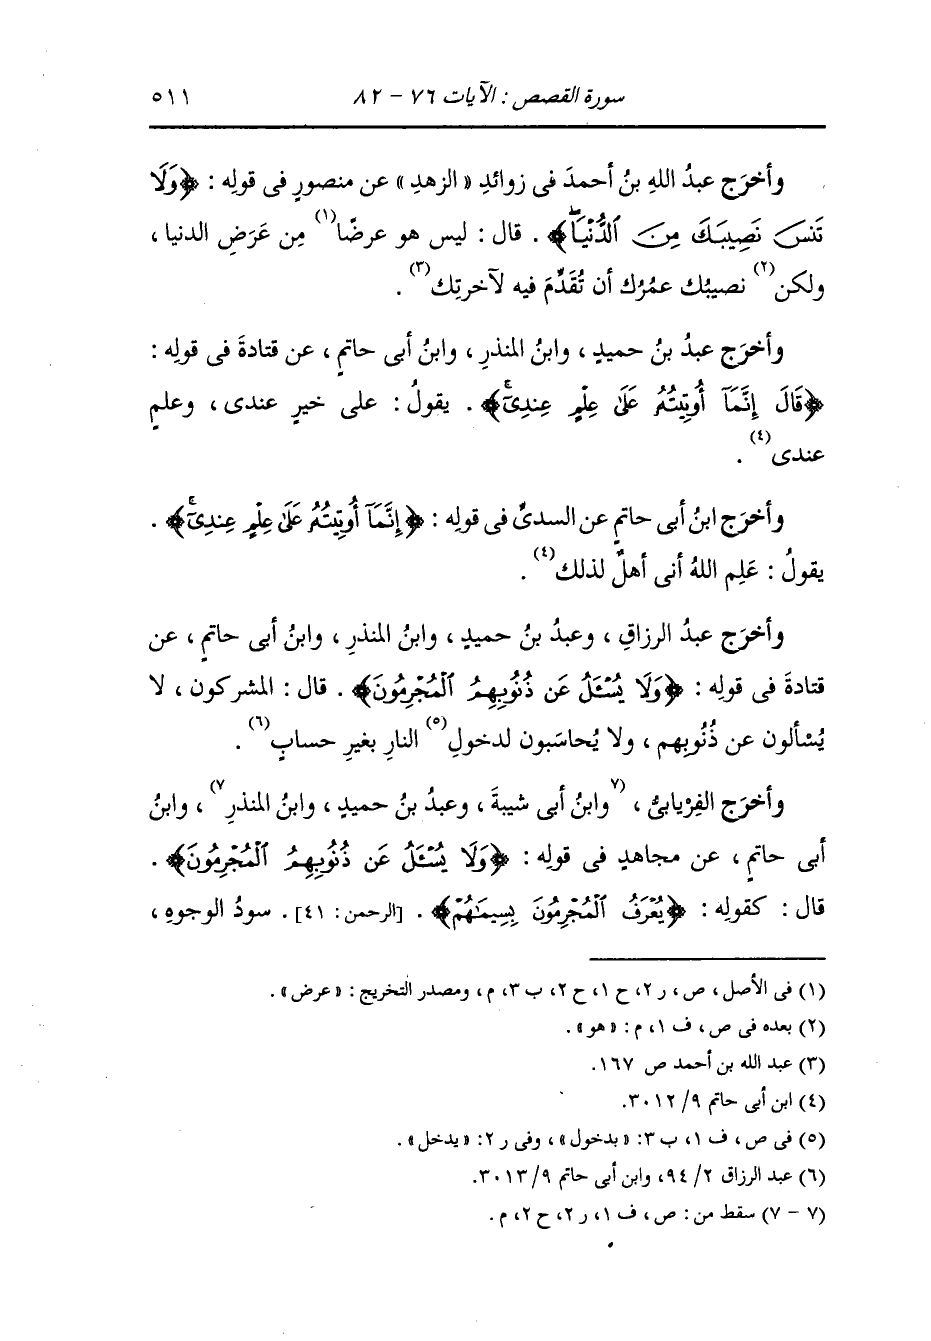 سورة القصص : الآيات ٧٦ - ٨٢ ٥١١
وأخرَج عبدُ اللهِ بنُ أحمدَ فى زوائدِ « الزهدِ » عن منصورٍ فى قولِه : ﴿وَلَا
تَنسَ نَصِيبَكَ مِنَ ٱلدُّنْيَاۖ﴾ . قال : ليس هو عرضًا(١) مِن عَرَضِ الدنيا ،
ولكن(٢) نصيبُك عمُرُك أن تُقَدِّمَ فيه لآخرتِك(٣) .
وأخرَج عبدُ بنُ حميدٍ ، وابنُ المنذرِ ، وابنُ أبى حاتمٍ ، عن قتادةَ فى قولِه :
﴿قَالَ إِنَّمَآ أُوتِيتُهُۥ عَلَىٰ عِلْمٍ عِندِىٓۚ﴾ . يقولُ : على خيرٍ عندى ، وعلمٍ
عندى(٤) .
وأخرَج ابنُ أبى حاتمٍ عن السدىِّ فى قولِه : ﴿إِنَّمَآ أُوتِيتُهُۥ عَلَىٰ عِلْمٍ عِندِىٓۚ﴾ .
يقولُ : عَلِم اللهُ أنى أهلٌ لذلك(٤) .
وأخرَج عبدُ الرزاقِ ، وعبدُ بنُ حميدٍ ، وابنُ المنذرِ ، وابنُ أبى حاتمٍ ، عن
قتادةَ فى قولِه : ﴿وَلَا يُسْـَٔلُ عَن ذُنُوبِهِمُ ٱلْمُجْرِمُونَ﴾ . قال : المشركون ، لا
يُسْألون عن ذُنُوبِهم ، ولا يُحاسَبون لدخولِ(٥) النارِ بغيرِ حسابٍ(٦) .
وأخرَج الفِرْيابىُّ ، (٧وابنُ أبى شيبةَ ، وعبدُ بنُ حميدٍ ، وابنُ المنذرِ٧) ، وابنُ
أبى حاتمٍ ، عن مجاهدٍ فى قولِه : ﴿وَلَا يُسْـَٔلُ عَن ذُنُوبِهِمُ ٱلْمُجْرِمُونَ﴾ .
قال : كقولِه : ﴿يُعْرَفُ ٱلْمُجْرِمُونَ بِسِيمَٰهُمْ﴾ . [الرحمن : ٤١] . سودُ الوجوهِ ،
(١) فى الأصل ، ص ، ر ٢، ح ١، ح ٢، ب ٣، م ، ومصدر التخريج : «عرض» .
(٢) بعده فى ص ، ف ١، م : «هو» .
(٣) عبد الله بن أحمد ص ١٦٧.
(٤) ابن أبى حاتم ٣٠١٢/٩.
(٥) فى ص ، ف ١، ب ٣: «بدخول» ، وفى ر ٢: «يدخل» .
(٦) عبد الرزاق ٩٤/٢، وابن أبى حاتم ٣٠١٣/٩.
(٧ - ٧) سقط من : ص ، ف ١، ر ٢، ح ٢، م .